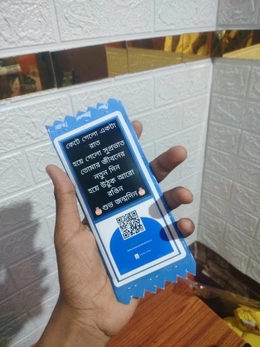 কেটে গেলো একটা
রাত
হয়ে গেলো সুপ্রভাত
তোমার জীবনের
নতুন দিন
হয়ে উঠুক আরো
রঙিন
🎂শুভ জন্মদিন🎂